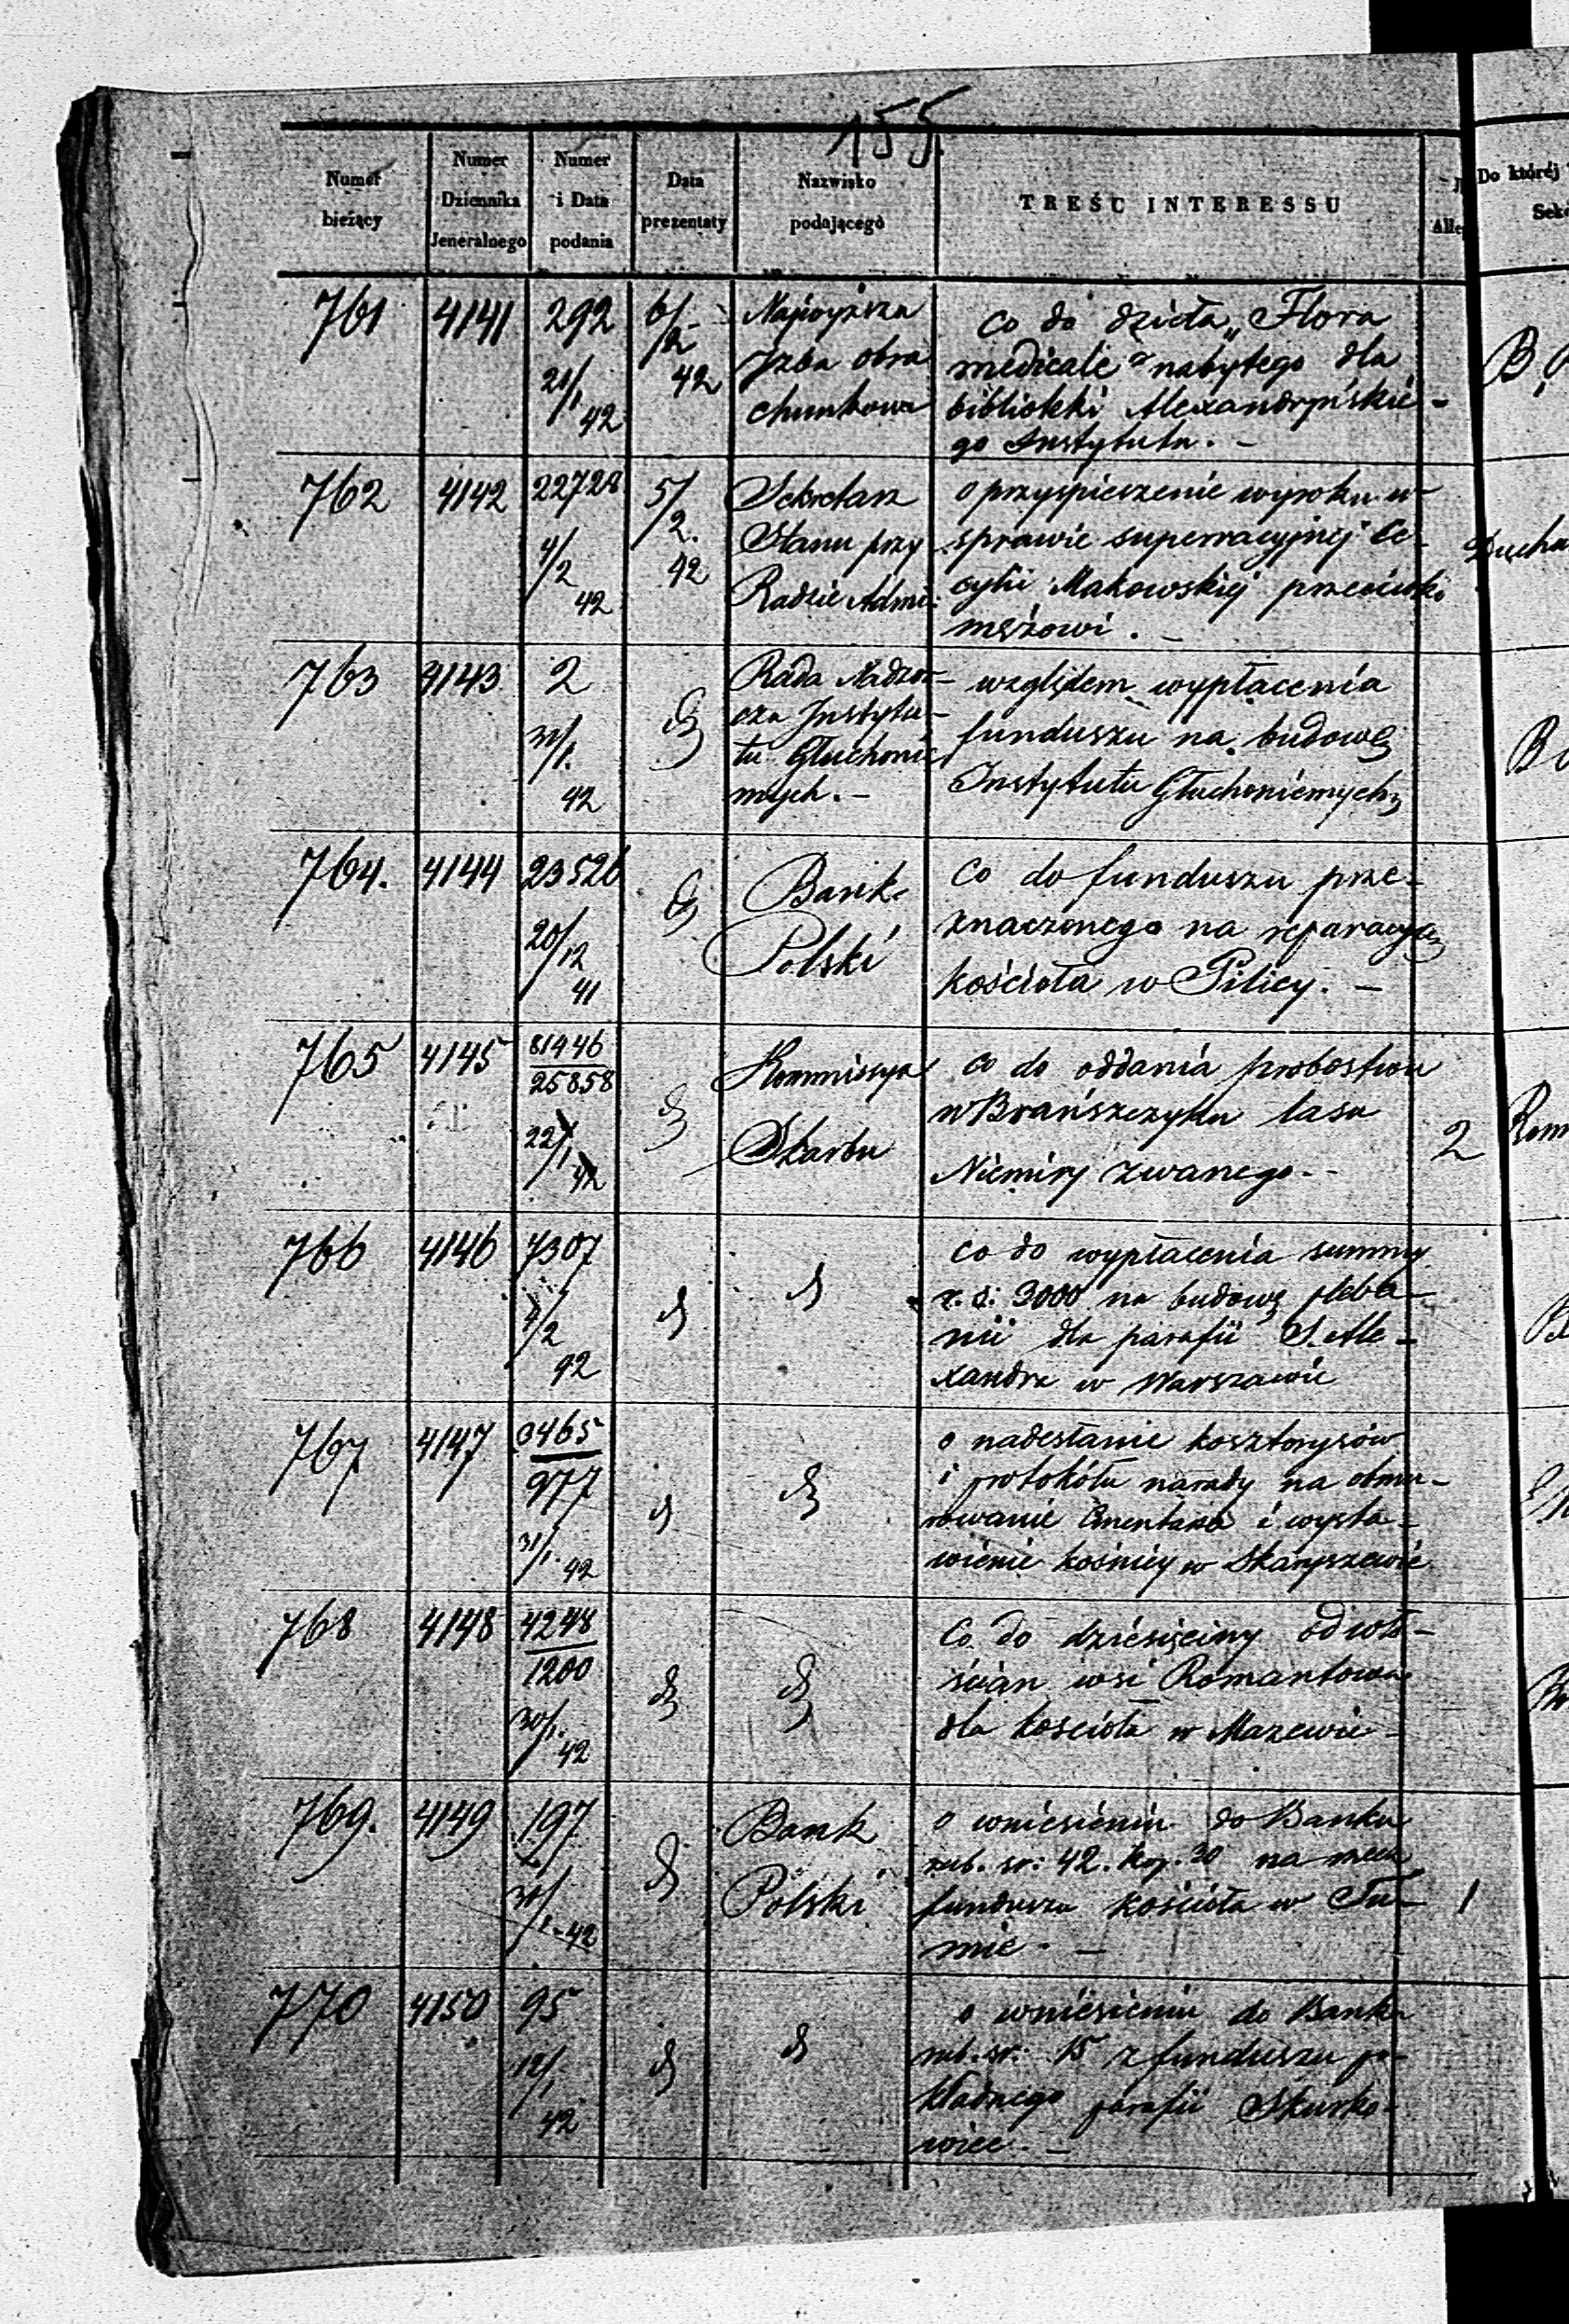 155.
Numer bieżący
Numer Dziennika Jeneralnego
Numer i Data podania
Data prezentaty
Nazwisko podającego
TREŚĆ INTERESSU
Do któréj
761 4141 292 21/1 42 6/2 42
Najwyższa
Jzba obra
chunkowa
Co do dzieła „Flora
medicale" nabytego dla
biblioteki Alexandryjskie-
go Instytutu. -
762 4142 22728 4/2 42 5/2. 42
Sekretarz
Stanu przy
Radzie Admi:
o przyspieszenie wyroku w
sprawie Ce-
cylii Makowskiej przeciwko
mężowi. -
763 4143 2 31/1. 42
Rada Nadzor-
cza Instytu-
tu Głuchonie
mych. -
względem wypłacenia
funduszu na budowę
Instytutu Głuchoniemych
764. 4144 23526 20/12 41
Bank
Polski
Co do funduszu prze-
znaczonego na reparacyę
kościoła w Pilicy. -
765 4145 81446 25858 22/1 42
Kommissya
Skarbu
co do oddania probostwu
w Brańszczyku lasu
Niemiry zwanego. -
2
766 4146 7307 4/2 42
co do wypłacenia summy
r. s: 3000 na budowę pleba-
nii dla parafii S. Ale-
xandra w Warszawie
767 4147 3465 977 31/1. 42
o nadesłanie kosztorysów
i protokółu narady na obmu-
rowanie Cmentarza i wysta-
wienie kośnicy w Skaryszewie
768 4148 4248 1200 30/1. 42
Co do dziesięciny od wło-
ścian wsi Romantowa
dla kościoła w Mazewie -
769. 4149 197 31/1. 42
Bank
Polski
o wniesieniu do Banku
rub. sr: 42. kop. 30 na
funduszu kościoła w Tu-
mie. -
1
770 4150 95 12/1 42
o wniesieniu do Banku
rub. sr: 15 z funduszu po-
kładnego parafii Skurko-
wice. -